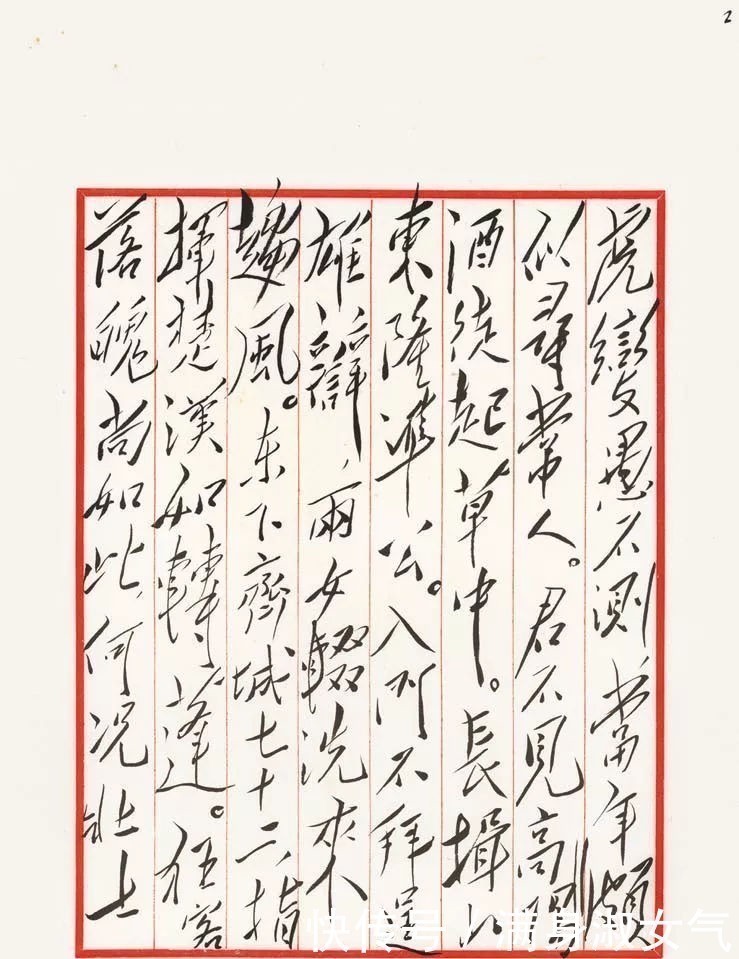 2
虎變愚不測當年頗
似尋常人。君不見高陽
酒徒起草中。長揖山
東隆準公。入门不拜逞
雄辯，兩女輟洗來
趨風。东下齊城七十二，指
揮楚漢如轉蓬。狂客
落魄尚如此，何况壯士
快传号 / 满身淑女气